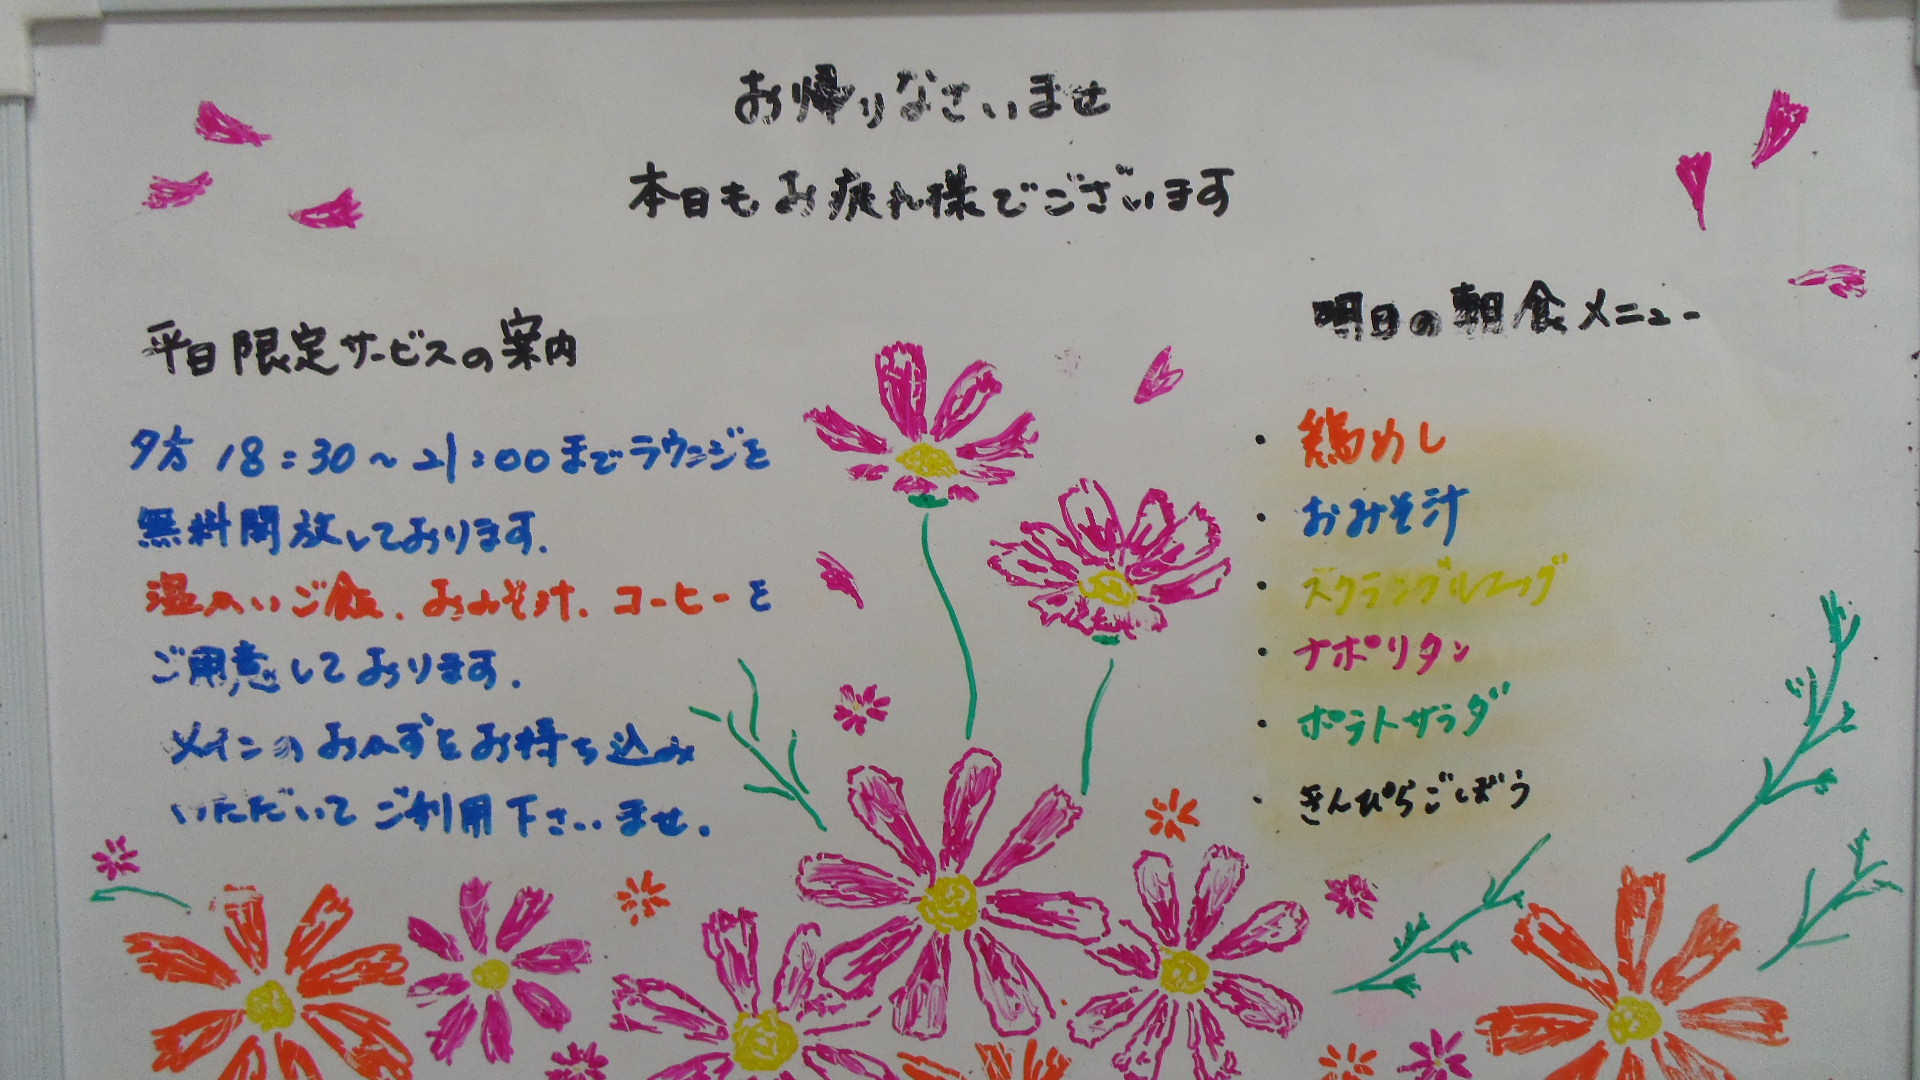 お帰りなさいませ
本日もお疲れ様でございます
平日限定サービスの案内
夕方 18:30～21:00までラウンジを
無料開放しております.
温かいご飯、おみそ汁、コーヒーを
ご用意しております.
メインのおかずをお持ち込み
いただいてご利用下さいませ.
明日の朝食メニュー
・鶏めし
・おみそ汁
・スクランブルエッグ
・ナポリタン
・ポテトサラダ
・きんぴらごぼう